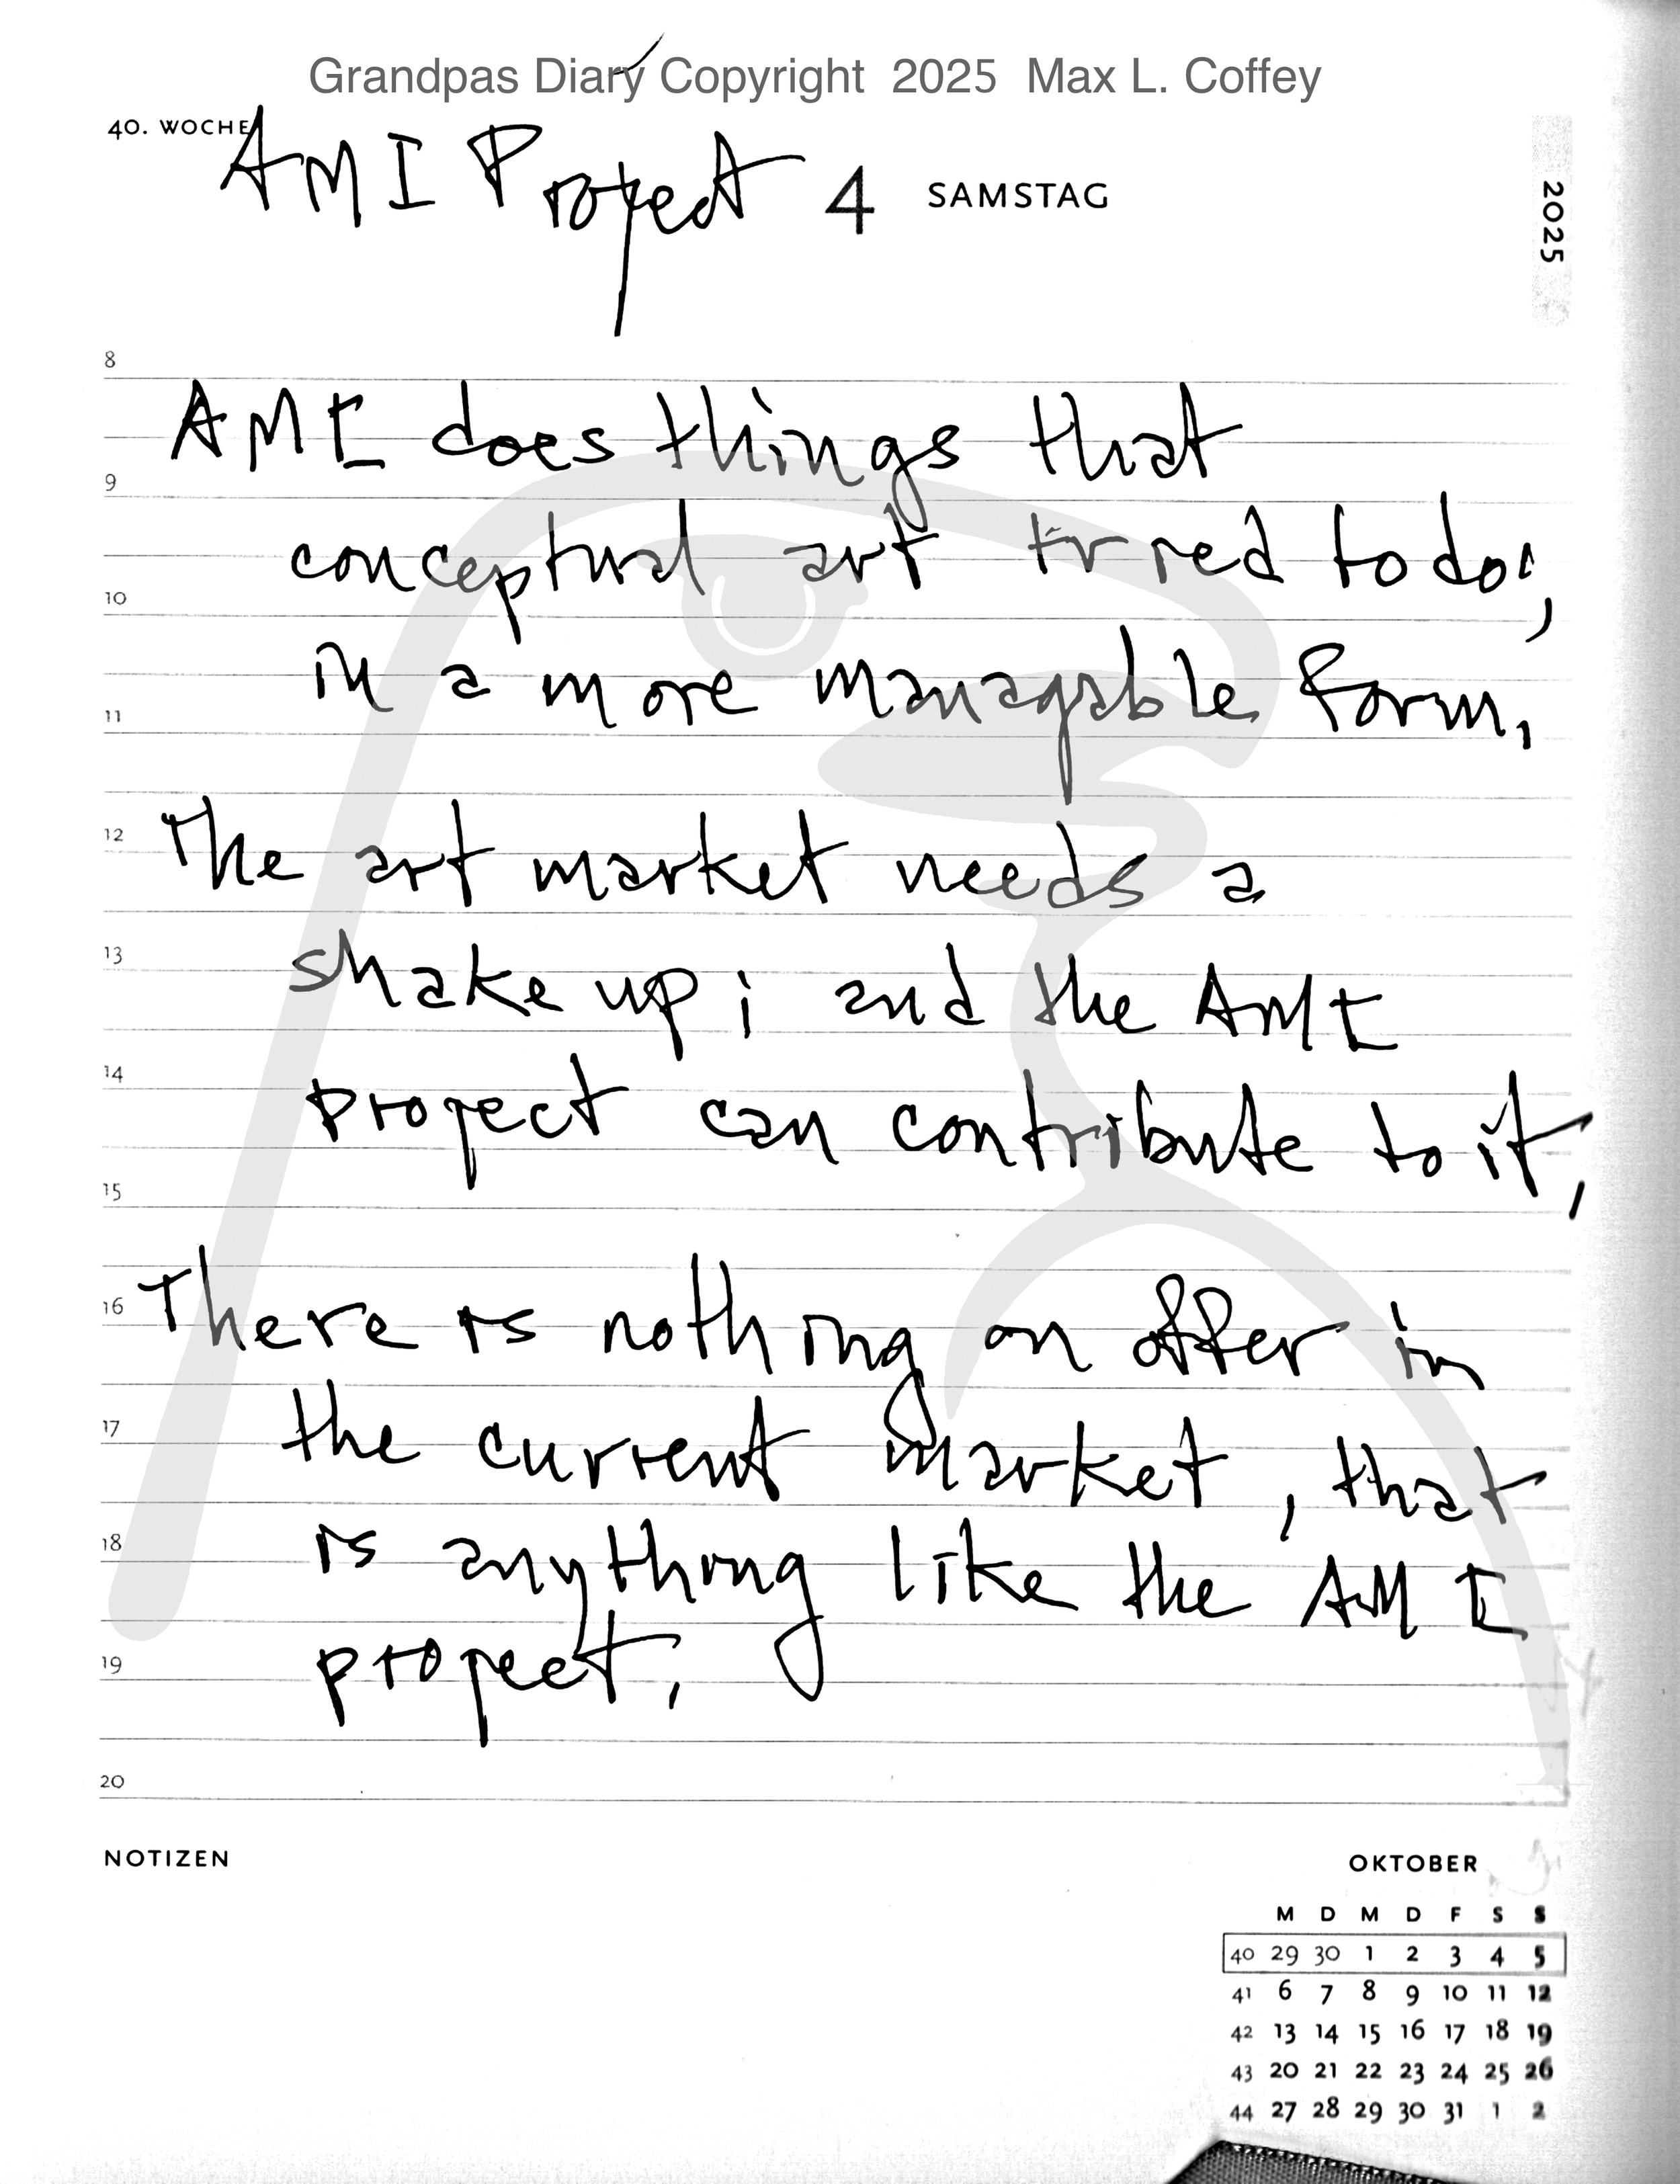 Grandpas Diary Copyright 2025 Max L. Coffey
40. WOCHE
AMI Project 4 SAMSTAG
2025
8
AMI does things that
9
conceptual art tried to do,
10
in a more managable form.
11
12
The art market needs a
13
shake up; and the AMI
14
project can contribute to it,
15
16
There is nothing on offer in
17
the current market, that
18
is anything like the AMI
19
project.
20
NOTIZEN
OKTOBER
M D M D F S S
40 29 30 1 2 3 4 5
41 6 7 8 9 10 11 12
42 13 14 15 16 17 18 19
43 20 21 22 23 24 25 26
44 27 28 29 30 31 1 2